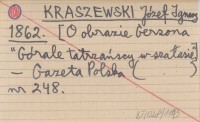 KRASZEWSKI Józef Ignacy
1862. [O obrazie Gersona
"Górale tatrzańscy w szałasie"]
— Gazeta Polska ( )
nr 248.